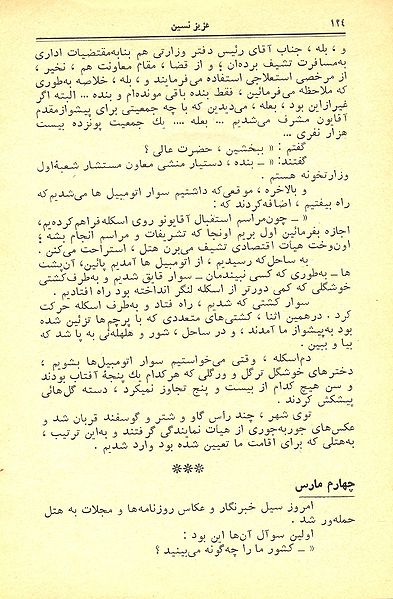 ۱۲٤
عزیز نسین
و ، بله ، جناب آقای رئیس دفتر وزارتی هم بنابه‌مقتضیات اداری
به‌مسافرت تشیف برده‌ان ؛ و از قضا ، مقام معاونت هم ، نخیر ،
از مرخصی استعلاجی استفاده می‌فرمایند و ، بله ، خلاصه به‌طوری
که ملاحظه می‌فرمائین ، فقط بنده باقی مونده‌ام و بنده ... البته اگر
غیرازاین بود ، بعله ، می‌دیدین که با چه جمعیتی برای پیشوازمقدم
آقایون مشرف می‌شدیم ... بعله .... یك جمعیت پونزده بیست
هزار نفری ...
گفتم : « ببخشین ، حضرت عالی ؟
گفتند: « ــ بنده ، دستیار منشی معاون مستشار شعبهٔ‌اول
وزارتخونه هستم .
و بالاخره ، موقعی‌که داشتیم سوار اتومبیل ها می‌شدیم‌که
راه بیفتیم ، اضافه‌کردند که :
« ــ چون‌مراسم استقبال آقایونو روی اسکله‌فراهم کرده‌یم،
اجازه بفرمائین اول بریم اونجا که تشریفات و مراسم انجام بشه ؛
اون‌وخت هیأت اقتصادی تشیف می‌برن هتل ، استراحت می‌کنن .
به ساحل‌که رسیدیم ، از اتومبیل ها آمدیم پائین، آن‌پشت
ها ــ به‌طوری که کسی نبیندمان ــ سوار قایق شدیم و به‌طرف‌کشتی
خوشگلی که کمی دورتر از اسکله لنگر انداخته بود راه افتادیم .
سوار کشتی که شدیم ، راه فتاد و به‌طرف اسکله حرکت
کرد . درهمین اثنا ، کشتی‌های متعددی که با پرچم‌ها تزئین شده
بود به‌پیشواز ما آمدند ، و در ساحل ، شور و هلهله‌ئی به پا شد که
بیا و ببین .
دم‌اسکله ، وقتی می‌خواستیم سوار اتومبیل‌ها بشویم ،
دخترهای خوشگل ترگل و ورگلی که هرکدام یك پنجهٔ آفتاب بودند
و سن هیچ کدام از بیست و پنج تجاوز نمیکرد ، دسته گل‌هائی
پیشکش کردند .
توی شهر ، چند راس گاو و شتر و گوسفند قربان شد و
عکس‌های جوربه‌جوری از هیأت نمایندگی گرفتند و به‌این ترتیب ،
به‌هتلی که برای اقامت ما تعیین شده بود وارد شدیم .
***
چهارم مارس
امروز سیل خبرنگار و عکاس روزنامه‌ها و مجلات به هتل
حمله‌ور شد .
اولین سوآل آن‌ها این بود :
« ــ کشور ما را چه‌گونه می‌بینید ؟